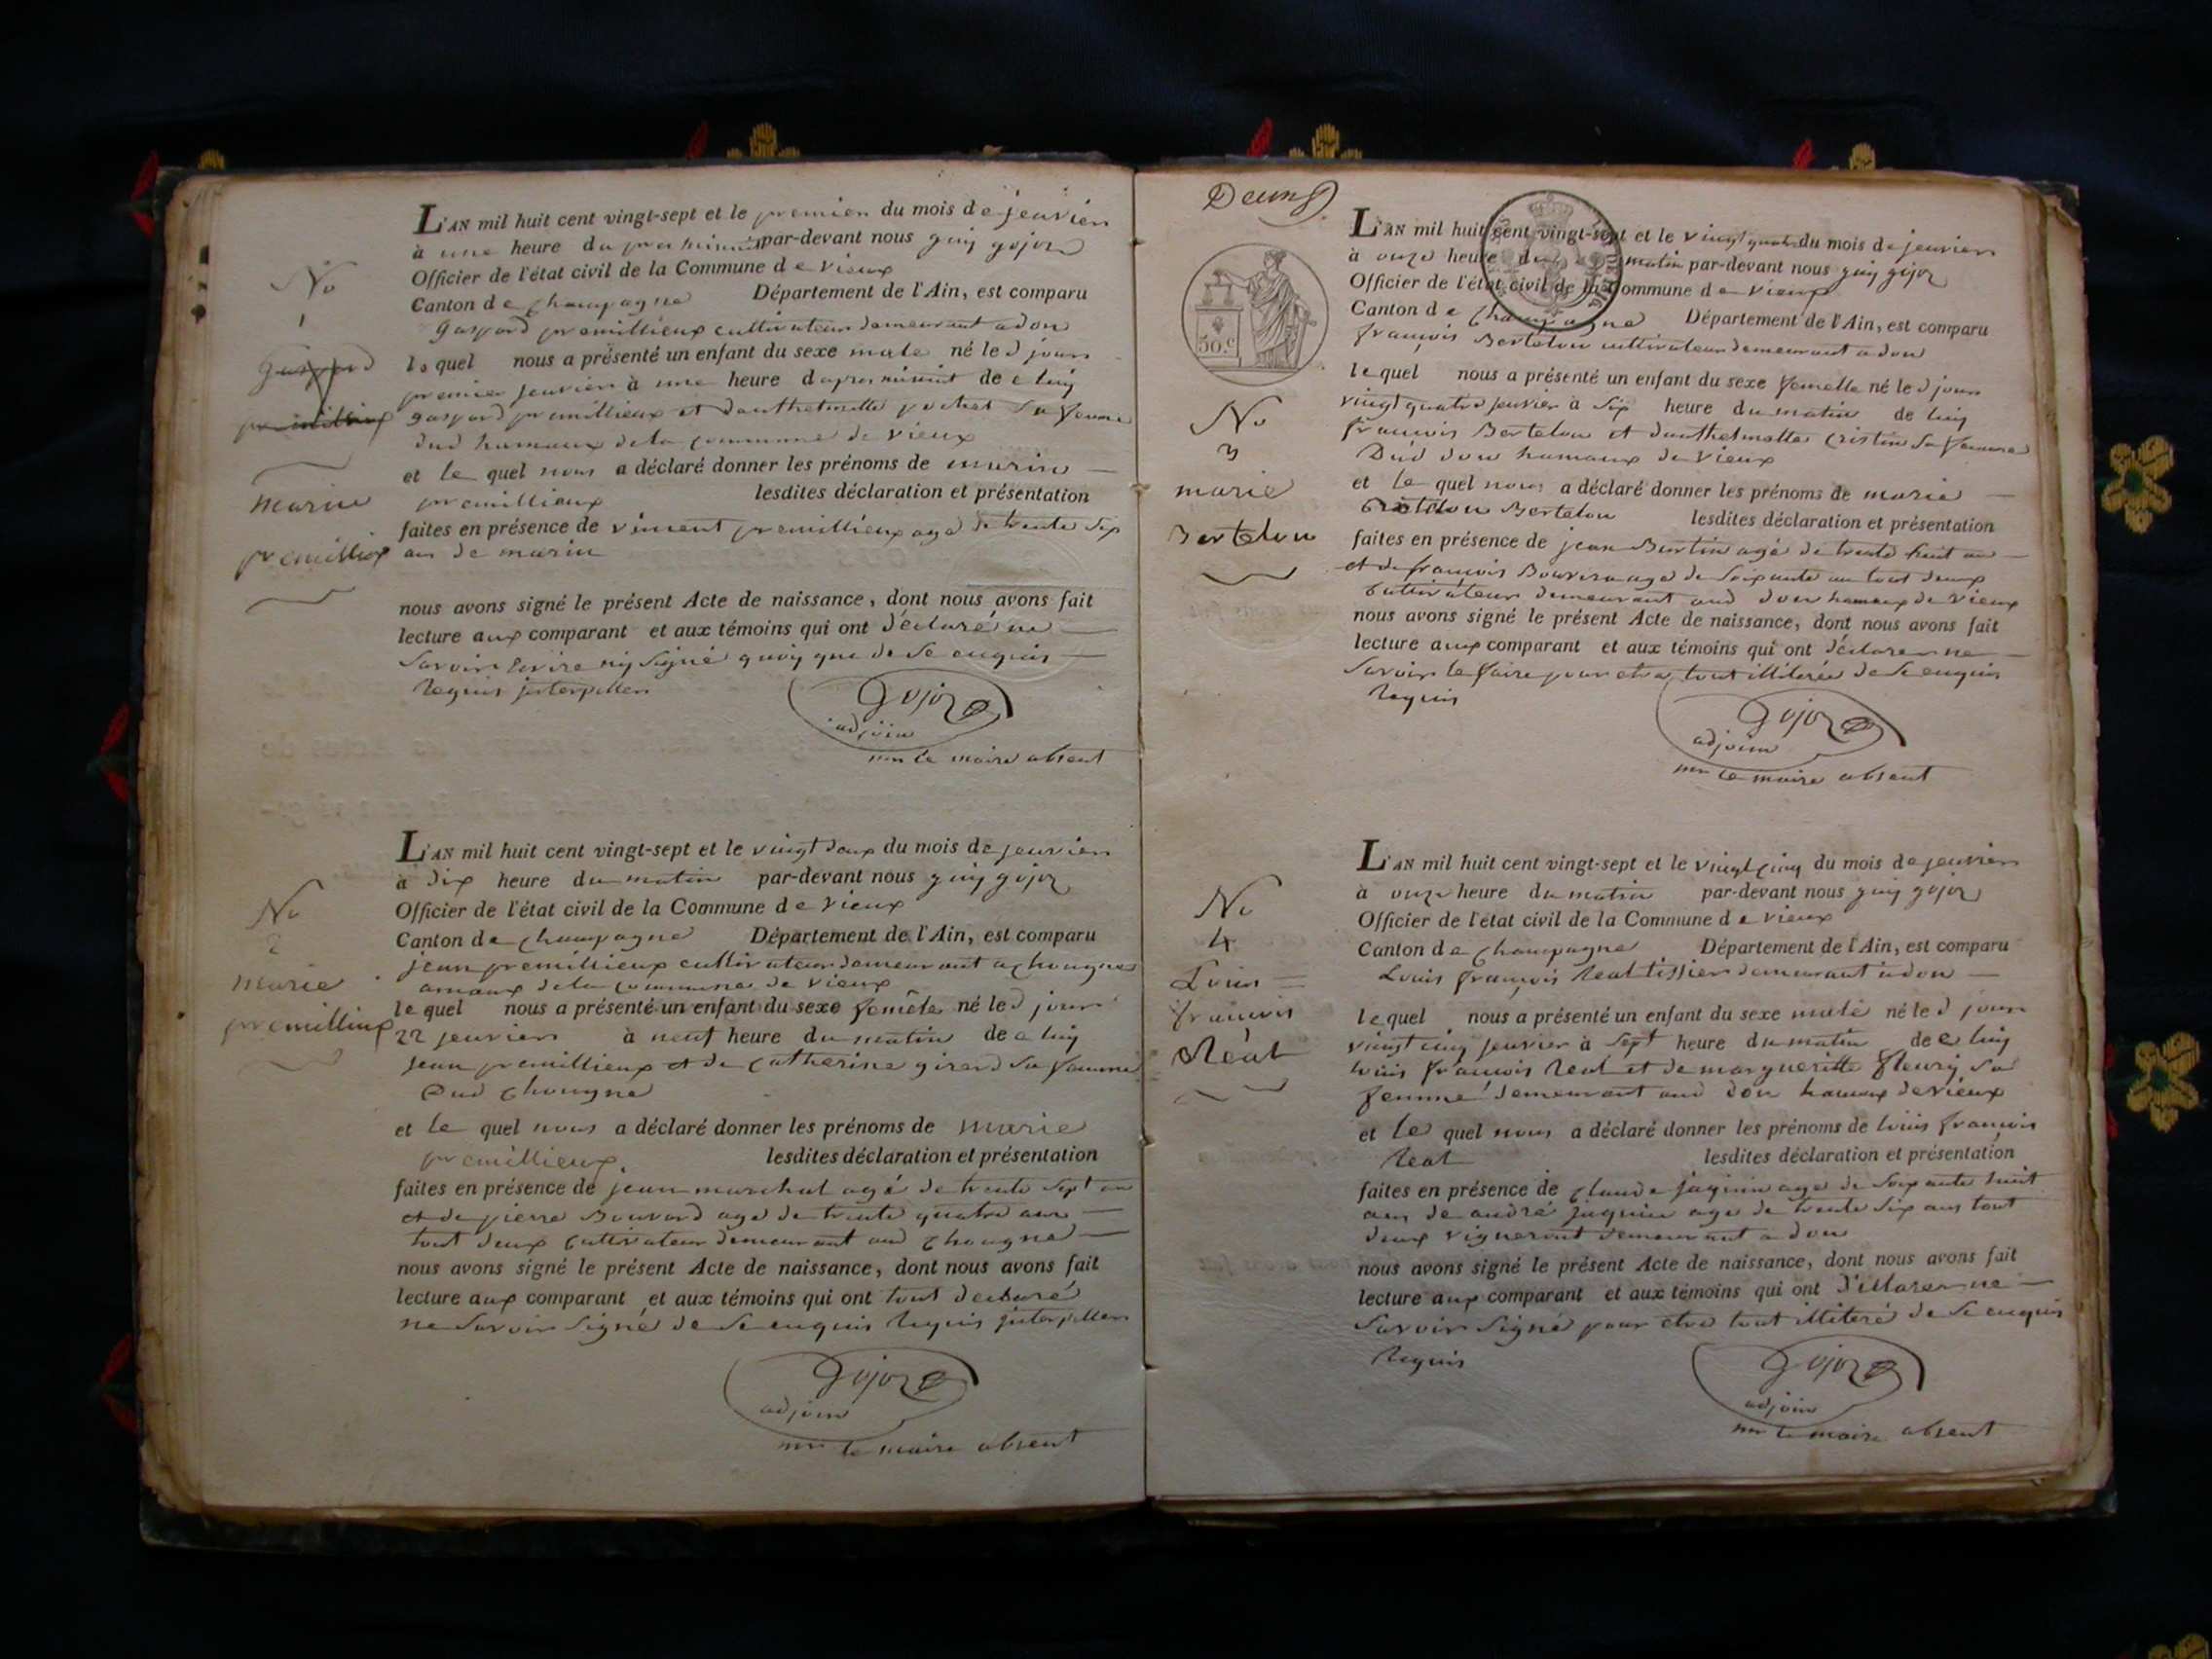 No
1
Gaspard
premillieux
marin
premillieux
L'AN mil huit cent vingt-sept et le premier du mois de jenvier
à une heure du par-devant nous guy gojoz
Officier de l'état civil de la Commune de vieux
Canton de Champagne Département de l'Ain, est comparu
gaspard premillieux cultivateur demeurant a don
le quel nous a présenté un enfant du sexe male né le d jour
premier jenvier à une heure dapres minuit de luy
gaspard premillieux et danthelmette sa femme
dud hameaux de la commune de vieux
et le quel nous a déclaré donner les prénoms de marin
premillieux lesdites déclaration et présentation
faites en présence de vincent premillieux agé de trente six
ans de marin
nous avons signé le présent Acte de naissance, dont nous avons fait
lecture aux comparant et aux témoins qui ont déclaré ne
savoir Ecrire ny signé quoy que de ce enquis
requis jnterpeller
gojoz
adjoin
mr le maire absent
No
2
marie
premillieux
L'AN mil huit cent vingt-sept et le vingt deux du mois de jenvier
à dix heure du matin par-devant nous guy gojoz
Officier de l'état civil de la Commune de vieux
Canton de Champagne Département de l'Ain, est comparu
jean premillieux cultivateur demeurant a chougne
amaux de la commune de vieux
le quel nous a présenté un enfant du sexe femele né le d jour
22 jenvier à neuf heure du matin de luy
jean premillieux et de Catherine girard sa femme
dud chougne
et le quel nous a déclaré donner les prénoms de marie
premillieux lesdites déclaration et présentation
faites en présence de jean marchal agé de trente sept an
et de pierre Bouvard agé de trente quatre ans
tout deux cultivateur demeurant aud chougne
nous avons signé le présent Acte de naissance, dont nous avons fait
lecture aux comparant et aux témoins qui ont tout declaré
ne savoir signé de ce enquis requis jnterpeller
gojoz
adjoin
mr le maire absent
Deux
50.c
No
3
marie
Bertelon
L'AN mil huit cent vingt-sept et le vingt quatre du mois de jenvier
à onze heure du matin par-devant nous guy gojoz
Officier de l'état civil de la Commune de vieux
Canton de Champagne Département de l'Ain, est comparu
françois Bertelon cultivateur demeurant a don
le quel nous a présenté un enfant du sexe femelle né le d jour
vingt quatre jenvier à six heure du matin de luy
francois Bertelon et danthelmette cristin sa femme
Dud don hamaux de vieux
et le quel nous a déclaré donner les prénoms de marie
Bertelon lesdites déclaration et présentation
faites en présence de jean Burtin agé de trente huit an
et de francois agé de soixante an tout deux
cultivateur demeurant aud don hamaux de vieux
nous avons signé le présent Acte de naissance, dont nous avons fait
lecture aux comparant et aux témoins qui ont déclarer ne
savoir le faire pour etre tout illiterée de ce enquis
requis
gojoz
adjoin
mr le maire absent
No
4
Louis
francois
Réat
L'AN mil huit cent vingt-sept et le vingt cinq du mois de jenvier
à onze heure du matin par-devant nous guy gojoz
Officier de l'état civil de la Commune de vieux
Canton de Champagne Département de l'Ain, est comparu
Louis françois Reat tissier demeurant à don
le quel nous a présenté un enfant du sexe male né le d jour
vingt cinq jenvier à sept heure du matin de luy
louis francois Reat et de margueritte fleury sa
femme demeurant aud don hamaux de vieux
et le quel nous a déclaré donner les prénoms de louis francois
Reat lesdites déclaration et présentation
faites en présence de Claude juquin agé de soixante huit
ans de andré juquin agé de trente six ans tout
deux vigneront demeurant a don
nous avons signé le présent Acte de naissance, dont nous avons fait
lecture aux comparant et aux témoins qui ont déclarer ne
savoir signé pour etre tout illiteré de ce enquis
requis
gojoz
adjoin
mr le maire absent